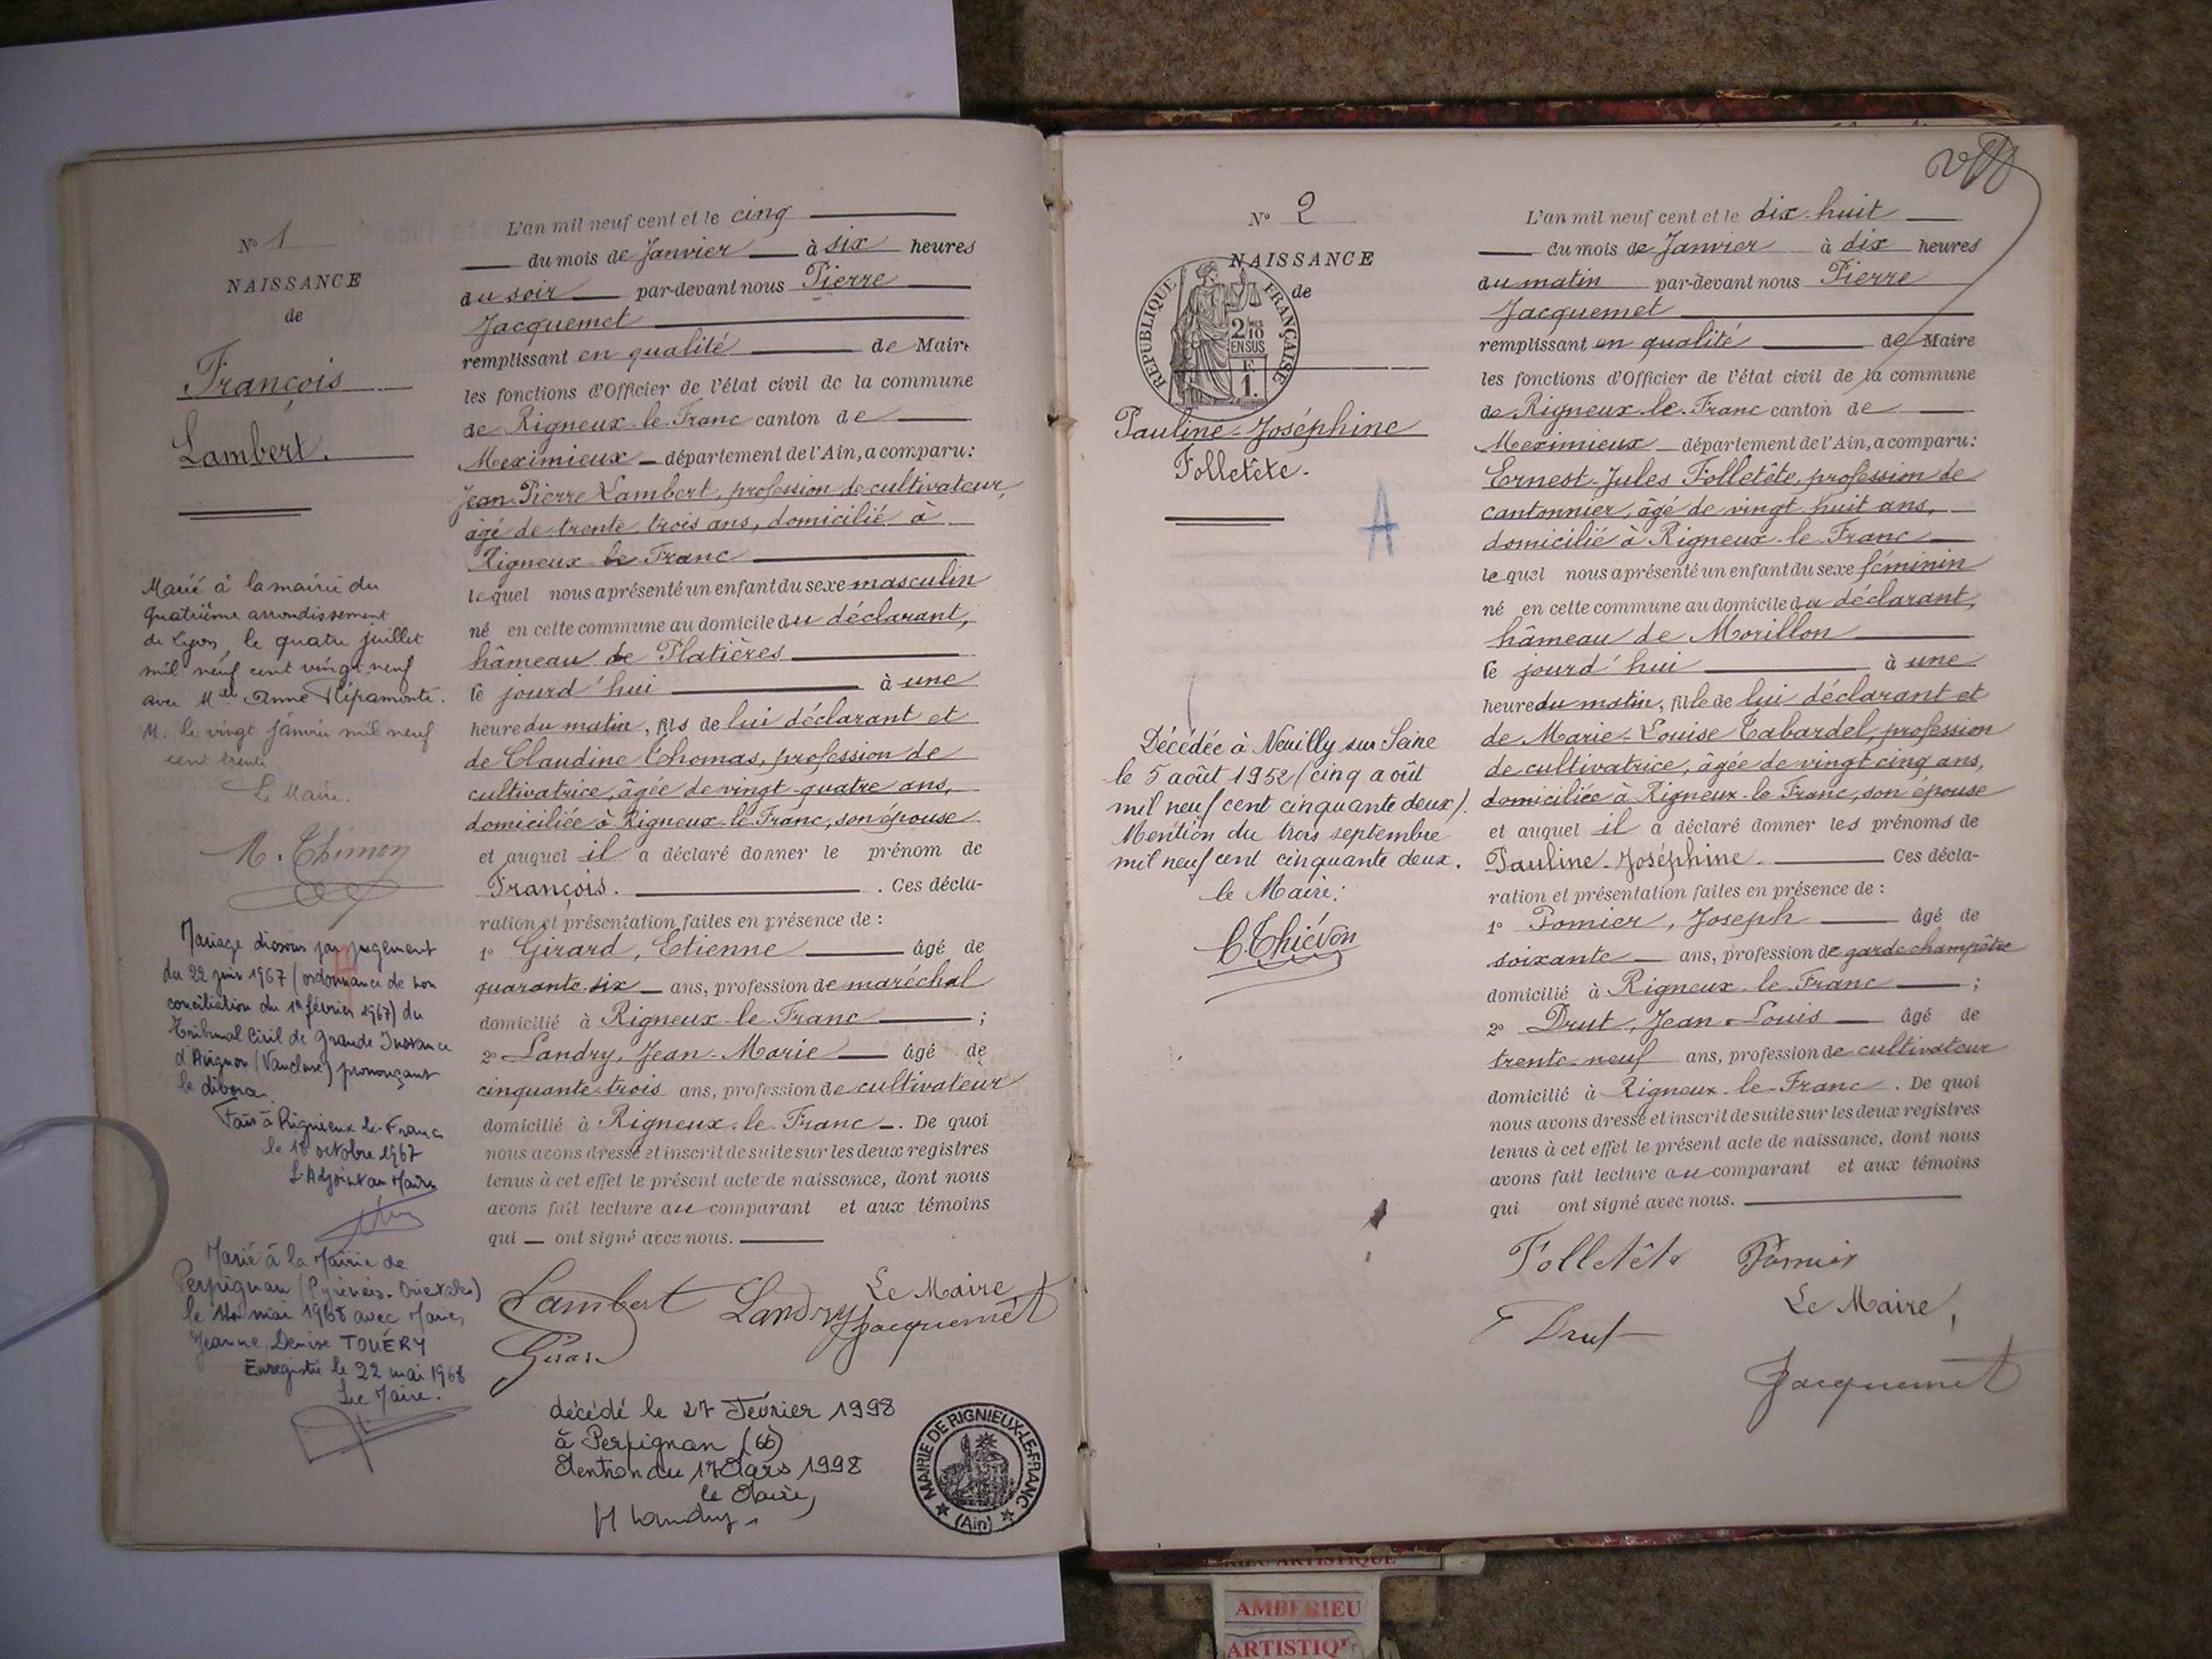 N° 1
NAISSANCE
de
François
Lambert.
Marié à la mairie du
quatrième arrondissement
de Lyon, le quatre juillet
mil neuf cent vingt neuf
avec Mlle Anne
M. le vingt janvier mil neuf
cent trente
Le Maire.
Mariage dissous par jugement
du 22 juin 1967 (ordonnance de non
conciliation du 1er février 1967) du
Tribunal Civil de Grande Instance
d'Avignon (Vaucluse) prononçant
le divorce.
Fait à Rignieux-le-Franc
le 18 octobre 1967
L'Adjoint au Maire
Marié à la Mairie de
Perpignan (Pyrénées-Orientales)
le mai 1968 avec Marie,
Jeanne, Denise TOUÉRY
Enregistré le 22 mai 1968
Le Maire.
L'an mil neuf cent et le cinq
du mois de Janvier à six heures
du soir par-devant nous Pierre
Jacquemet
remplissant en qualité de Maire
les fonctions d'Officier de l'état civil de la commune
de Rigneux-le-Franc canton de
Meximieux département de l'Ain, a comparu:
Jean-Pierre Lambert, profession de cultivateur,
âgé de trente trois ans, domicilié à
Rigneux le Franc
lequel nous a présenté un enfant du sexe masculin
né en cette commune au domicile du déclarant,
hâmeau de Platières
le jourd'hui à une
heure du matin, fils de lui déclarant et
de Claudine Thomas, profession de
cultivatrice, âgée de vingt-quatre ans,
domiciliée à Rigneux-le-Franc, son épouse
et auquel il a déclaré donner le prénom de
François. . Ces décla-
ration et présentation faites en présence de :
1° Girard, Etienne âgé de
quarante-six ans, profession de maréchal
domicilié à Rigneux-le-Franc ;
2° Landry, Jean-Marie âgé de
cinquante-trois ans, profession de cultivateur
domicilié à Rigneux-le-Franc. De quoi
nous avons dressé et inscrit de suite sur les deux registres
tenus à cet effet le présent acte de naissance, dont nous
avons fait lecture au comparant et aux témoins
qui ont signé avec nous.
Lambert Landry Le Maire
Jacquemet
Girard
décédé le 27 Février 1998
à Perpignan (66)
Mention du 17 Mars 1998
le Maire,
H Landry
MAIRIE DE RIGNIEUX-LE-FRANC
(Ain)
N° 2
NAISSANCE
de
REPUBLIQUE FRANÇAISE
2/10 MES
EN SUS
F
1.
Pauline-Joséphine
Folletête.
A
Décédée à Neuilly sur Seine
le 5 août 1952 (cinq août
mil neuf cent cinquante deux).
Mention du trois septembre
mil neuf cent cinquante deux.
le Maire:
C. Thiévon
L'an mil neuf cent et le dix-huit
du mois de Janvier à dix heures
du matin par-devant nous Pierre
Jacquemet
remplissant en qualité de Maire
les fonctions d'Officier de l'état civil de la commune
de Rigneux-le-Franc canton de
Meximieux département de l'Ain, a comparu:
Ernest-Jules Folletête, profession de
cantonnier, âgé de vingt huit ans,
domicilié à Rigneux-le-Franc
lequel nous a présenté un enfant du sexe féminin
né en cette commune au domicile du déclarant,
hâmeau de Morillon
le jourd'hui à une
heure du matin, fille de lui déclarant et
de Marie-Louise Tabardel, profession
de cultivatrice, âgée de vingt cinq ans,
domiciliée à Rigneux-le-Franc, son épouse
et auquel il a déclaré donner les prénoms de
Pauline-Joséphine. Ces décla-
ration et présentation faites en présence de :
1° Pomier, Joseph âgé de
soixante ans, profession de garde champêtre
domicilié à Rigneux-le-Franc ;
2° Drut, Jean-Louis âgé de
trente-neuf ans, profession de cultivateur
domicilié à Rigneux-le-Franc. De quoi
nous avons dressé et inscrit de suite sur les deux registres
tenus à cet effet le présent acte de naissance, dont nous
avons fait lecture au comparant et aux témoins
qui ont signé avec nous.
Folletête Pomier
Le Maire,
Drut
Jacquemet
ARTISTIQUE
AMBERIEU
ARTISTIQU